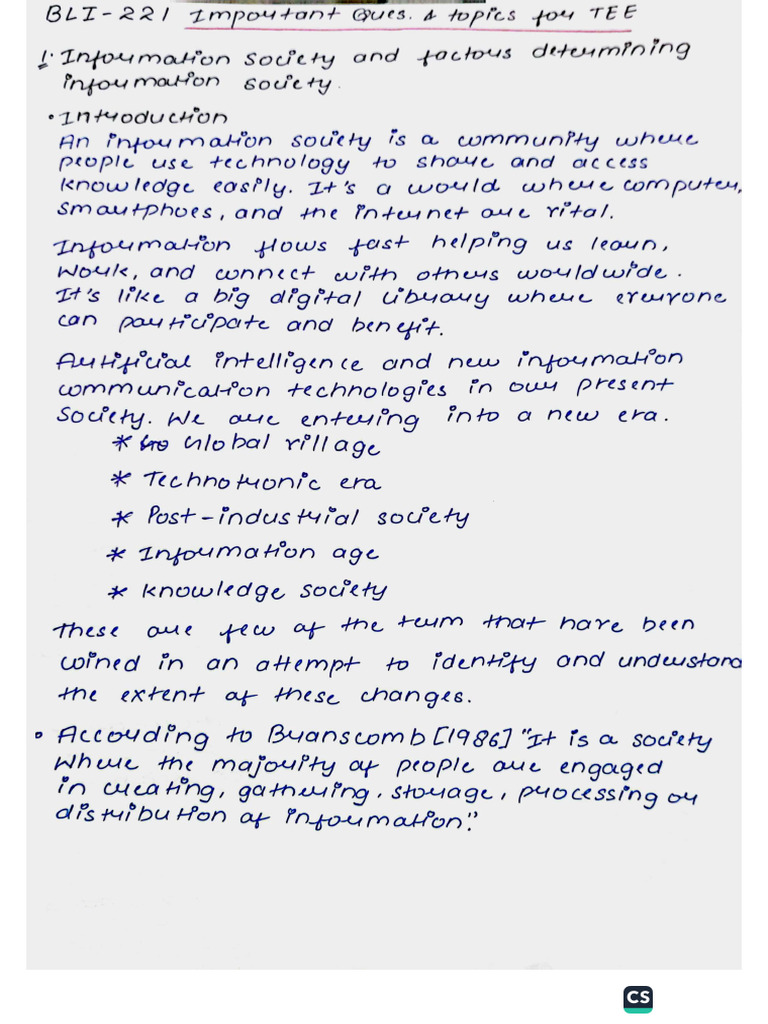 BLI-221 Important Ques. & topics for TEE
1. Information Society and factors determining
information society.
• Introduction
An information society is a community where
people use technology to share and access
knowledge easily. It's a world where computer,
smartphoes, and the internet are vital.
Information flows fast helping us learn,
work, and connect with others worldwide.
It's like a big digital library where everyone
can participate and benefit.
Artificial intelligence and new information
communication technologies in our present
society. We are entering into a new era.
* Global village
* Technotronic era
* Post-industrial society
* Information age
* Knowledge society
These are few of the term that have been
coined in an attempt to identify and understand
the extent of these changes.
• According to Branscomb [1986] "It is a society
where the majority of people are engaged
in creating, gathering, storage, processing or
distribution of information."
CS